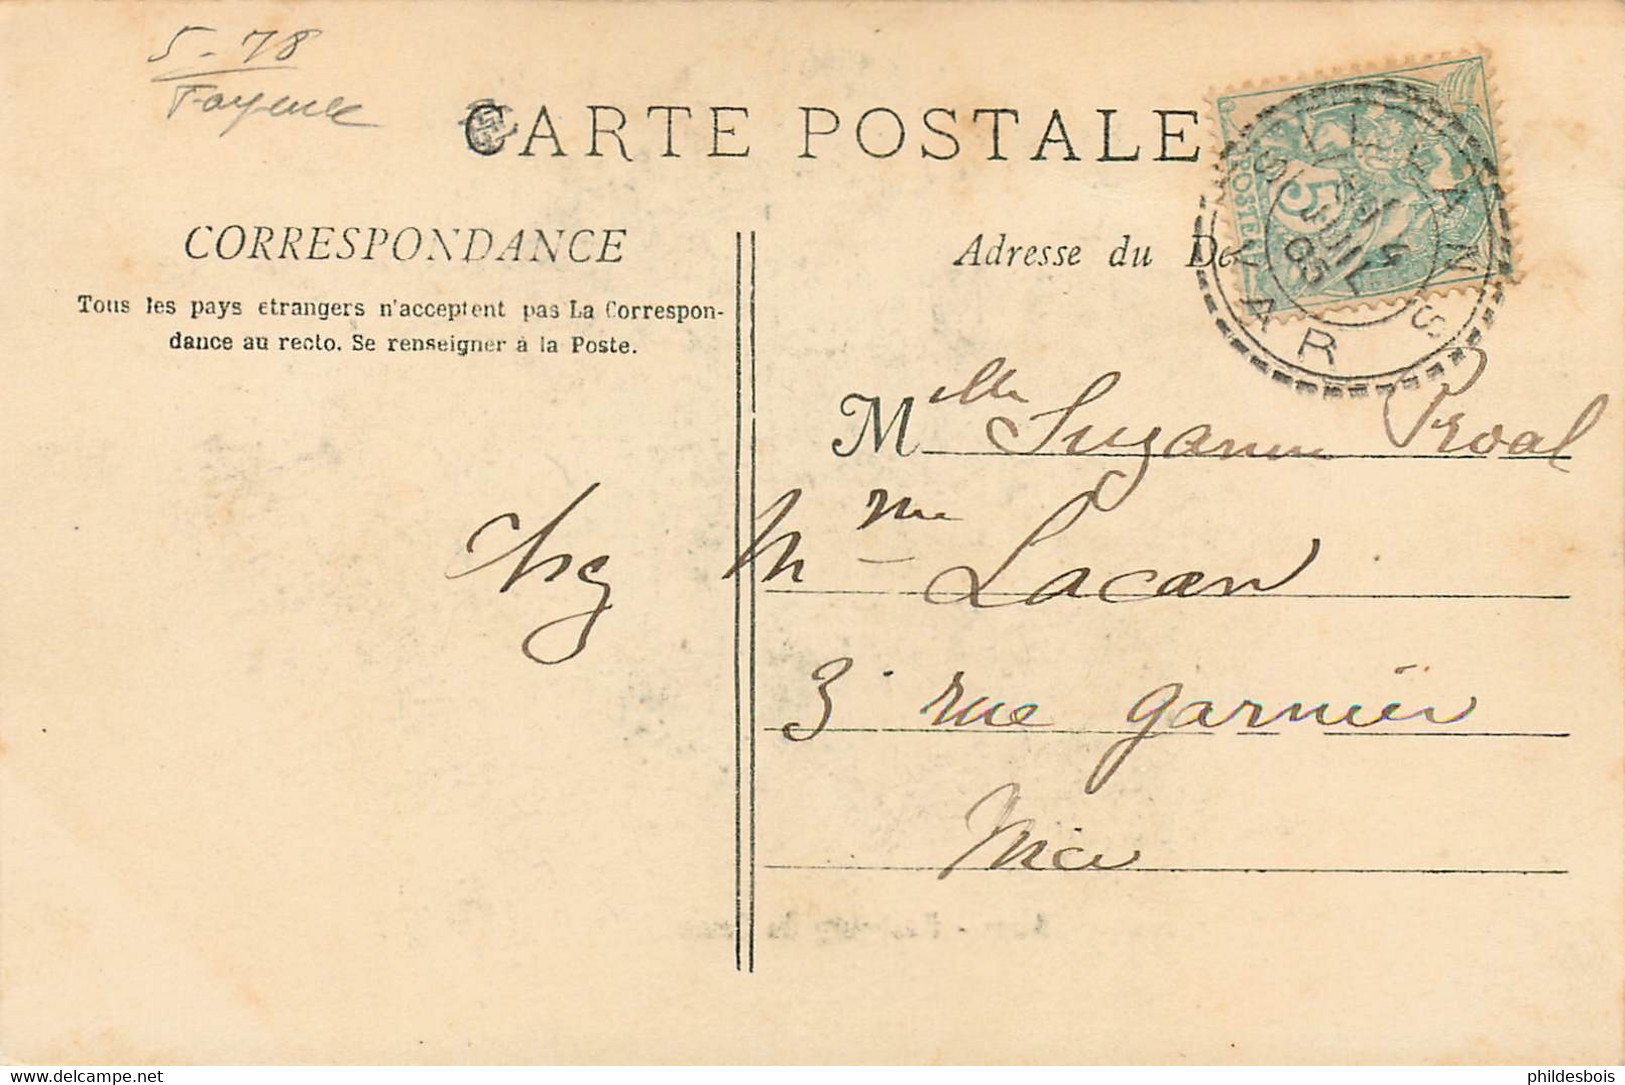 5-78
Fayence
CARTE POSTALE
CORRESPONDANCE
Tous les pays etrangers n'acceptent pas La Correspon-
dance au recto. Se renseigner à la Poste.
Adresse du De
POSTE
5
VAR
4
JUIL
05
Mlle Suzanne Proal
chez Mme Lacan
3 rue garnier
Nice
Taille réelle : cliquez sur l'image
phildesbois